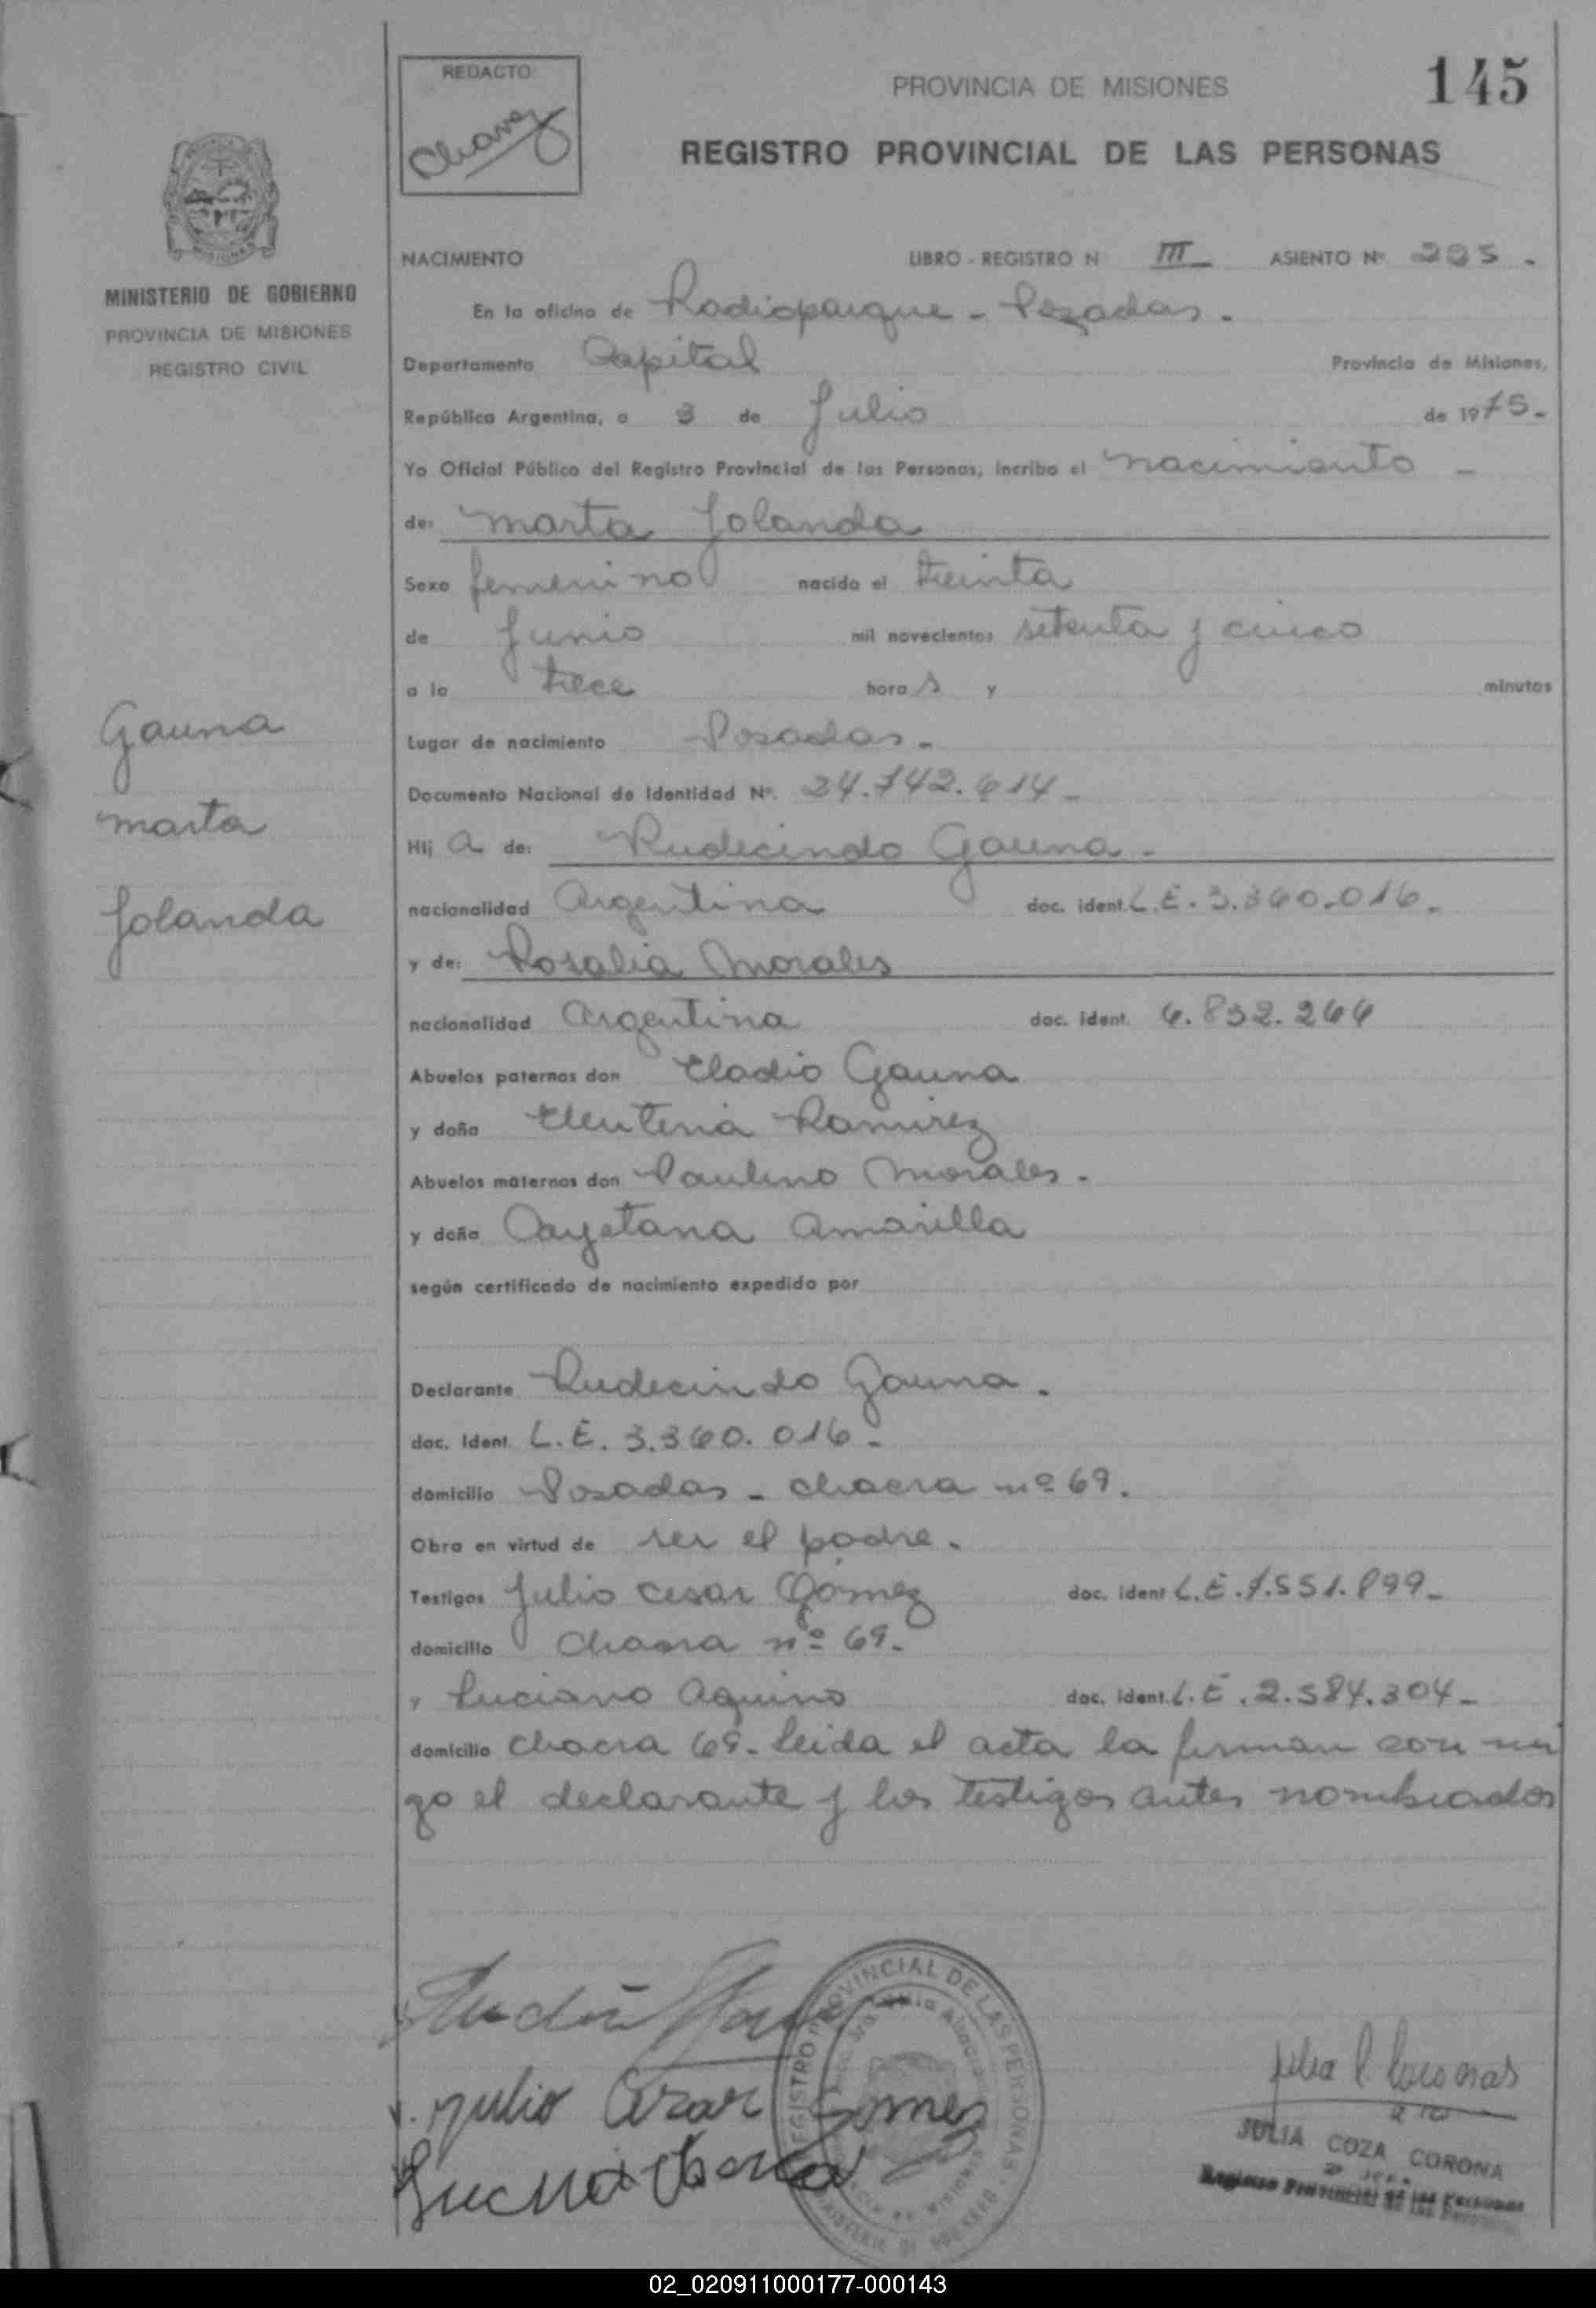 REDACTO
Chavez
PROVINCIA DE MISIONES
145
REGISTRO PROVINCIAL DE LAS PERSONAS
MINISTERIO DE GOBIERNO
PROVINCIA DE MISIONES
REGISTRO CIVIL
NACIMIENTO LIBRO - REGISTRO N III ASIENTO Nº 225 -
En la oficina de Radioparque - Posadas.
Departamento Capital Provincia de Misiones,
República Argentina, a 3 de Julio de 1975.-
Yo Oficial Público del Registro Provincial de las Personas, incribo el nacimiento -
de: Marta Jolanda
Sexo femenino nacido el treinta
de Junio mil novecientos setenta y cinco
a la trece hora s y minutos
Lugar de nacimiento Posadas.-
Documento Nacional de Identidad Nº. 24.742.614-
Gauna
Marta
Jolanda
Hij a de: Rudecindo Gauna.-
nacionalidad Argentina doc. ident. L.E. 3.360.016.
y de: Rosalia Morales
nacionalidad Argentina doc. ident. 4.832.264
Abuelos paternos don Eladio Gauna
y doña Eleuteria Ramirez
Abuelos maternos don Paulino Morales.
y doña Cayetana Amarilla
según certificado de nacimiento expedido por
Declarante Rudecindo Gauna.
doc. Ident. L.E. 3.360.016-
domicilio Posadas - chacra nº 69.
Obra en virtud de ser el padre.
Testigos Julio Cesar Gómez doc. ident L.E. 7.551.899-
domicilio Chacra nº 69.
y Luciano Aquino doc. ident. L.E. 2.584.304-
domicilio chacra 69- Leida el acta la firman con mi
go el declarante y los testigos antes nombrados
Julio Cesar Gomez
REGISTRO PROVINCIAL DE LAS PERSONAS
JULIA COZA CORONA
Registro Provincial de las Personas
02_020911000177-000143